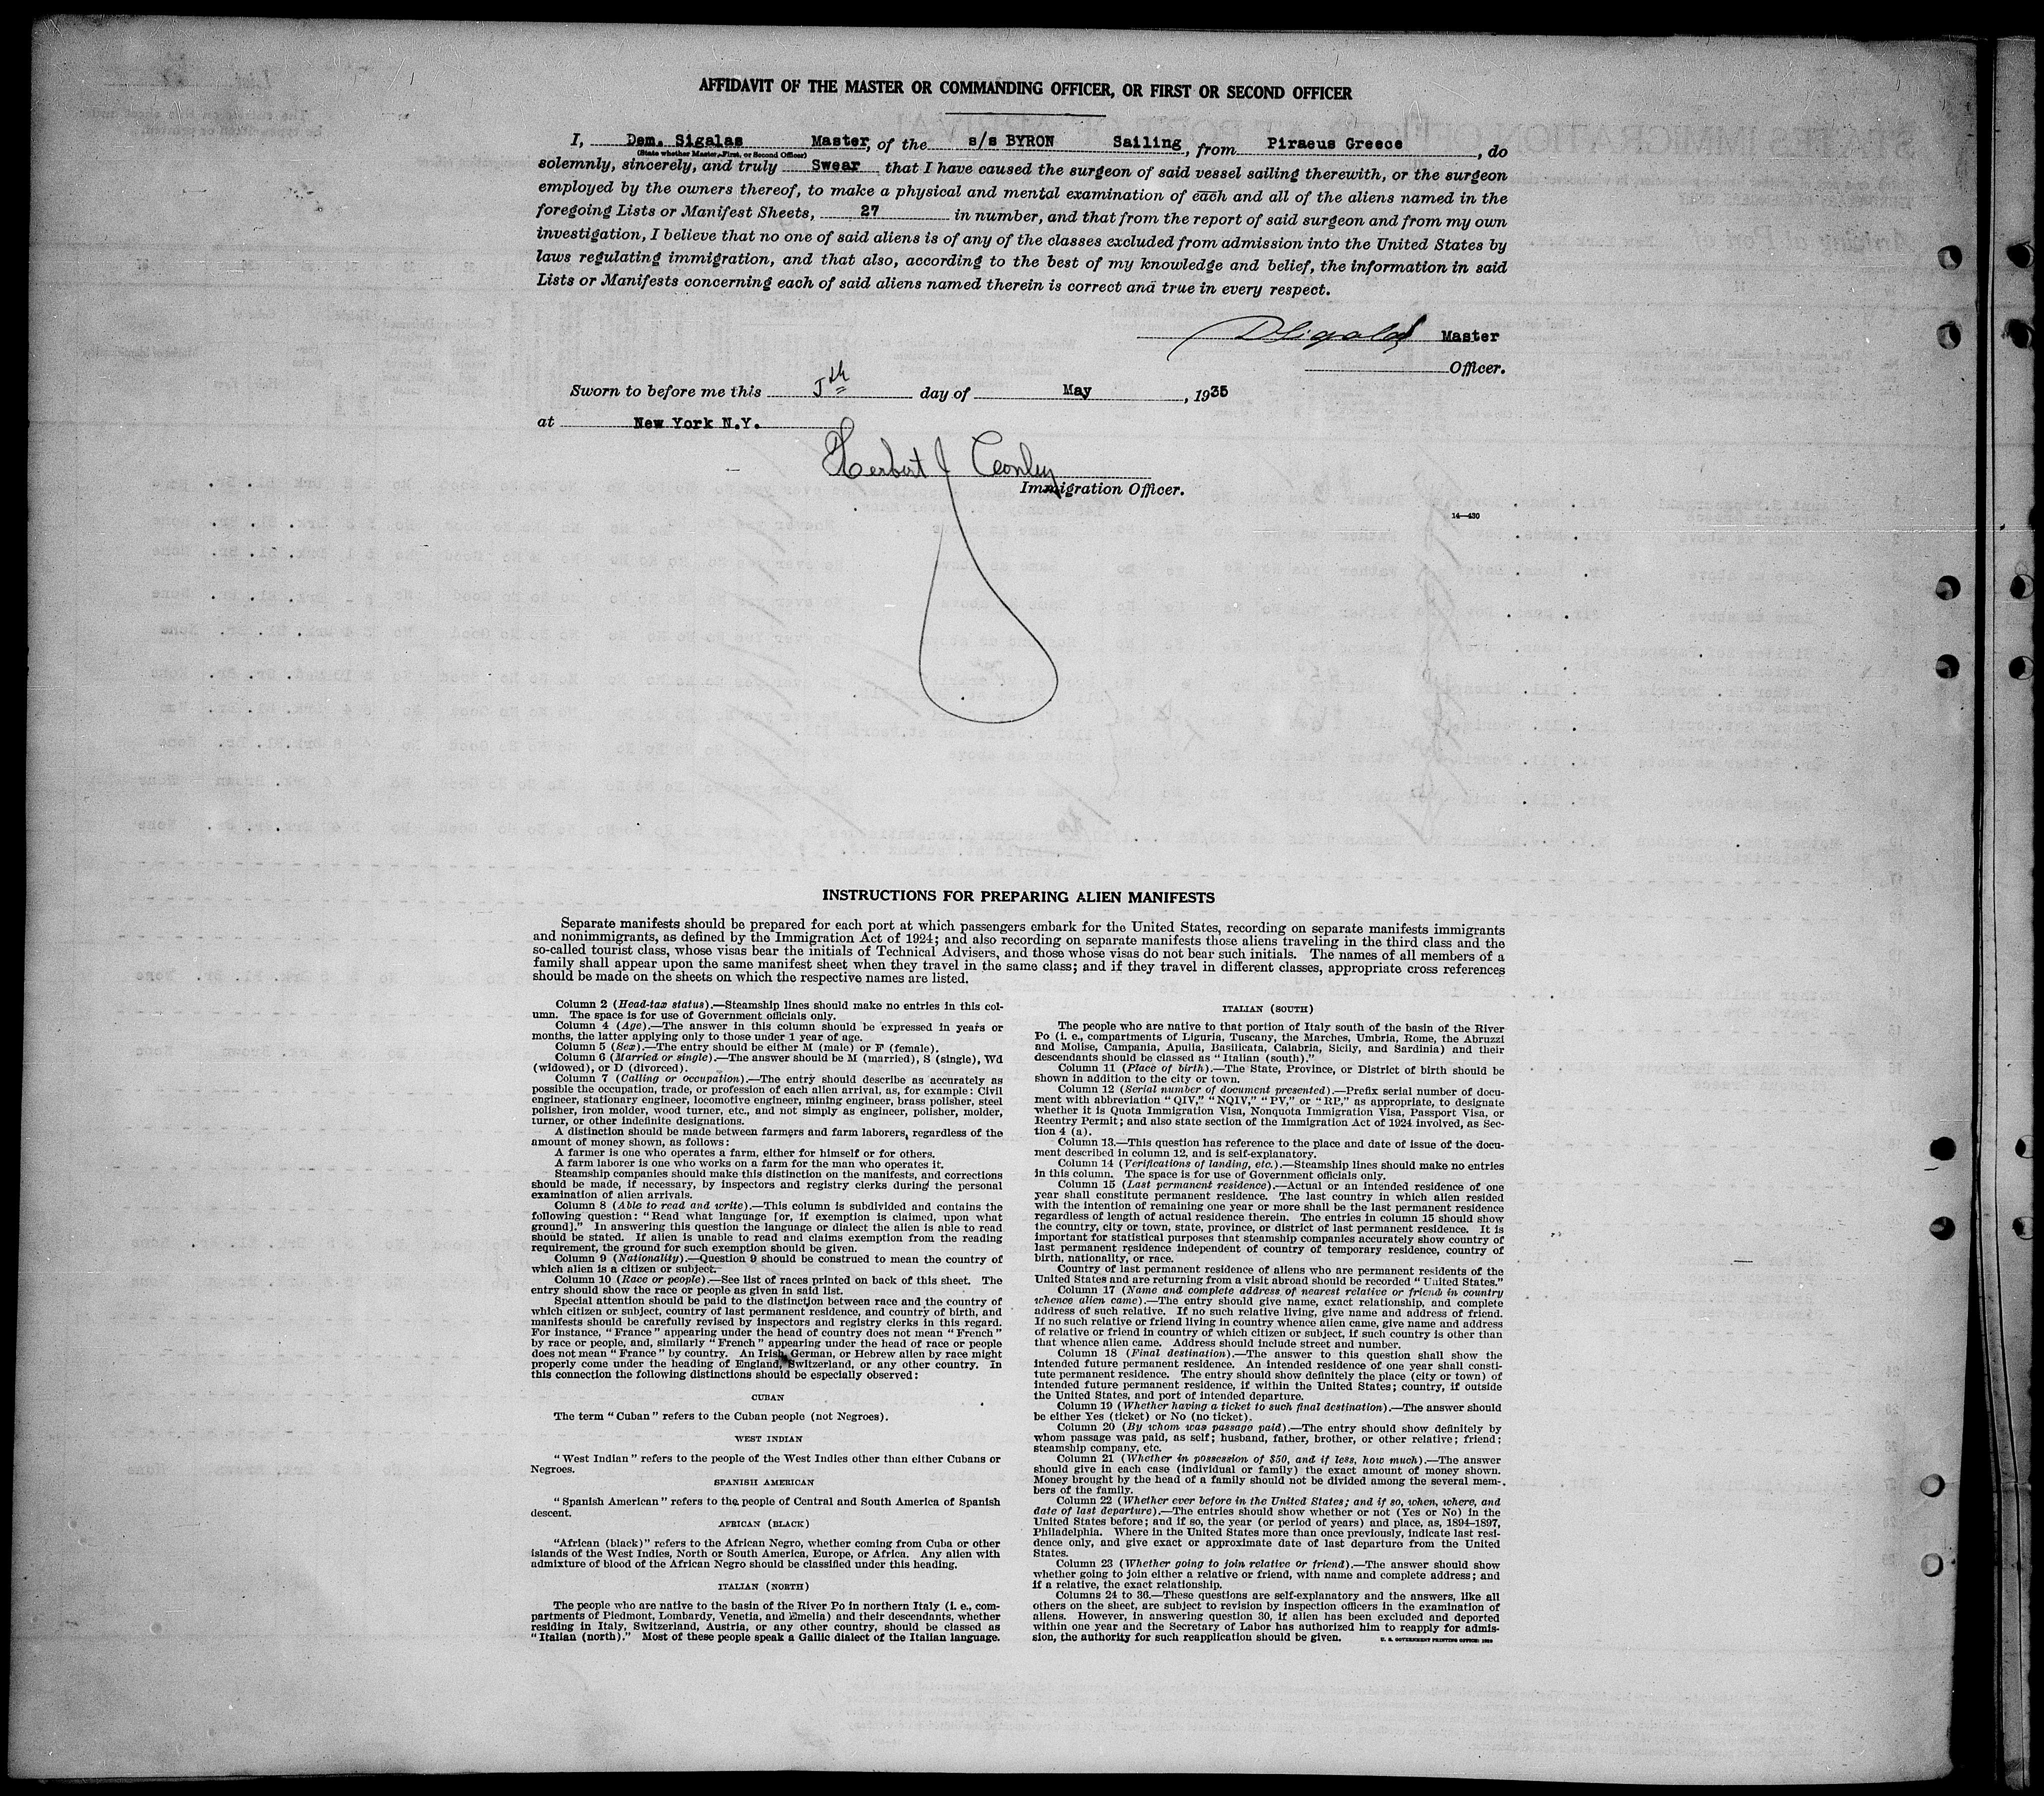 AFFIDAVIT OF THE MASTER OR COMMANDING OFFICER, OR FIRST OR SECOND OFFICER
I, Dem. Sigalas Master, of the s/s BYRON Sailing, from Piraeus Greece, do
(State whether Master, First, or Second Officer)
solemnly, sincerely, and truly Swear that I have caused the surgeon of said vessel sailing therewith, or the surgeon
employed by the owners thereof, to make a physical and mental examination of each and all of the aliens named in the
foregoing Lists or Manifest Sheets, 27 in number, and that from the report of said surgeon and from my own
investigation, I believe that no one of said aliens is of any of the classes excluded from admission into the United States by
laws regulating immigration, and that also, according to the best of my knowledge and belief, the information in said
Lists or Manifests concerning each of said aliens named therein is correct and true in every respect.
DSigalas Master
Officer.
Sworn to before me this 5th day of May, 1935
at New York N.Y.
Herbert J Conley
Immigration Officer.
14—430
INSTRUCTIONS FOR PREPARING ALIEN MANIFESTS
Separate manifests should be prepared for each port at which passengers embark for the United States, recording on separate manifests immigrants
and nonimmigrants, as defined by the Immigration Act of 1924; and also recording on separate manifests those aliens traveling in the third class and the
so-called tourist class, whose visas bear the initials of Technical Advisers, and those whose visas do not bear such initials. The names of all members of a
family shall appear upon the same manifest sheet when they travel in the same class; and if they travel in different classes, appropriate cross references
should be made on the sheets on which the respective names are listed.
Column 2 (Head-tax status).—Steamship lines should make no entries in this col-
umn. The space is for use of Government officials only.
Column 4 (Age).—The answer in this column should be expressed in years or
months, the latter applying only to those under 1 year of age.
Column 5 (Sex).—The entry should be either M (male) or F (female).
Column 6 (Married or single).—The answer should be M (married), S (single), Wd
(widowed), or D (divorced).
Column 7 (Calling or occupation).—The entry should describe as accurately as
possible the occupation, trade, or profession of each alien arrival, as, for example: Civil
engineer, stationary engineer, locomotive engineer, mining engineer, brass polisher, steel
polisher, iron molder, wood turner, etc., and not simply as engineer, polisher, molder,
turner, or other indefinite designations.
A distinction should be made between farmers and farm laborers, regardless of the
amount of money shown, as follows:
A farmer is one who operates a farm, either for himself or for others.
A farm laborer is one who works on a farm for the man who operates it.
Steamship companies should make this distinction on the manifests, and corrections
should be made, if necessary, by inspectors and registry clerks during the personal
examination of alien arrivals.
Column 8 (Able to read and write).—This column is subdivided and contains the
following question: "Read what language [or, if exemption is claimed, upon what
ground]." In answering this question the language or dialect the alien is able to read
should be stated. If alien is unable to read and claims exemption from the reading
requirement, the ground for such exemption should be given.
Column 9 (Nationality).—Question 9 should be construed to mean the country of
which alien is a citizen or subject.
Column 10 (Race or people).—See list of races printed on back of this sheet. The
entry should show the race or people as given in said list.
Special attention should be paid to the distinction between race and the country of
which citizen or subject, country of last permanent residence, and country of birth, and
manifests should be carefully revised by inspectors and registry clerks in this regard.
For instance, "France" appearing under the head of country does not mean "French"
by race or people, and, similarly "French" appearing under the head of race or people
does not mean "France" by country. An Irish, German, or Hebrew alien by race might
properly come under the heading of England, Switzerland, or any other country. In
this connection the following distinctions should be especially observed:
CUBAN
The term "Cuban" refers to the Cuban people (not Negroes).
WEST INDIAN
"West Indian" refers to the people of the West Indies other than either Cubans or
Negroes.
SPANISH AMERICAN
"Spanish American" refers to the people of Central and South America of Spanish
descent.
AFRICAN (BLACK)
"African (black)" refers to the African Negro, whether coming from Cuba or other
islands of the West Indies, North or South America, Europe, or Africa. Any alien with
admixture of blood of the African Negro should be classified under this heading.
ITALIAN (NORTH)
The people who are native to the basin of the River Po in northern Italy (i. e., com-
partments of Piedmont, Lombardy, Venetia, and Emelia) and their descendants, whether
residing in Italy, Switzerland, Austria, or any other country, should be classed as
"Italian (north)." Most of these people speak a Gallic dialect of the Italian language.
ITALIAN (SOUTH)
The people who are native to that portion of Italy south of the basin of the River
Po (i. e., compartments of Liguria, Tuscany, the Marches, Umbria, Rome, the Abruzzi
and Molise, Campania, Apulia, Basilicata, Calabria, Sicily, and Sardinia) and their
descendants should be classed as "Italian (south)."
Column 11 (Place of birth).—The State, Province, or District of birth should be
shown in addition to the city or town.
Column 12 (Serial number of document presented).—Prefix serial number of docu-
ment with abbreviation "QIV," "NQIV," "PV," or "RP," as appropriate, to designate
whether it is Quota Immigration Visa, Nonquota Immigration Visa, Passport Visa, or
Reentry Permit; and also state section of the Immigration Act of 1924 involved, as Sec-
tion 4 (a).
Column 13.—This question has reference to the place and date of issue of the docu-
ment described in column 12, and is self-explanatory.
Column 14 (Verifications of landing, etc.).—Steamship lines should make no entries
in this column. The space is for use of Government officials only.
Column 15 (Last permanent residence).—Actual or an intended residence of one
year shall constitute permanent residence. The last country in which alien resided
with the intention of remaining one year or more shall be the last permanent residence
regardless of length of actual residence therein. The entries in column 15 should show
the country, city or town, state, province, or district of last permanent residence. It is
important for statistical purposes that steamship companies accurately show country of
last permanent residence independent of country of temporary residence, country of
birth, nationality, or race.
Country of last permanent residence of aliens who are permanent residents of the
United States and are returning from a visit abroad should be recorded "United States."
Column 17 (Name and complete address of nearest relative or friend in country
whence alien came).—The entry should give name, exact relationship, and complete
address of such relative. If no such relative living, give name and address of friend.
If no such relative or friend living in country whence alien came, give name and address
of relative or friend in country of which citizen or subject, if such country is other than
that whence alien came. Address should include street and number.
Column 18 (Final destination).—The answer to this question shall show the
intended future permanent residence. An intended residence of one year shall consti-
tute permanent residence. The entry should show definitely the place (city or town) of
intended future permanent residence, if within the United States; country, if outside
the United States, and port of intended departure.
Column 19 (Whether having a ticket to such final destination).—The answer should
be either Yes (ticket) or No (no ticket).
Column 20 (By whom was passage paid).—The entry should show definitely by
whom passage was paid, as self; husband, father, brother, or other relative; friend;
steamship company, etc.
Column 21 (Whether in possession of $50, and if less, how much).—The answer
should give in each case (individual or family) the exact amount of money shown.
Money brought by the head of a family should not be divided among the several mem-
bers of the family.
Column 22 (Whether ever before in the United States; and if so, when, where, and
date of last departure).—The entries should show whether or not (Yes or No) in the
United States before; and if so, the year (or period of years) and place, as, 1894–1897,
Philadelphia. Where in the United States more than once previously, indicate last resi-
dence only, and give exact or approximate date of last departure from the United
States.
Column 23 (Whether going to join relative or friend).—The answer should show
whether going to join either a relative or friend, with name and complete address; and
if a relative, the exact relationship.
Columns 24 to 36.—These questions are self-explanatory and the answers, like all
others on the sheet, are subject to revision by inspection officers in the examination of
aliens. However, in answering question 30, if alien has been excluded and deported
within one year and the Secretary of Labor has authorized him to reapply for admis-
sion, the authority for such reapplication should be given.
U. S. GOVERNMENT PRINTING OFFICE: